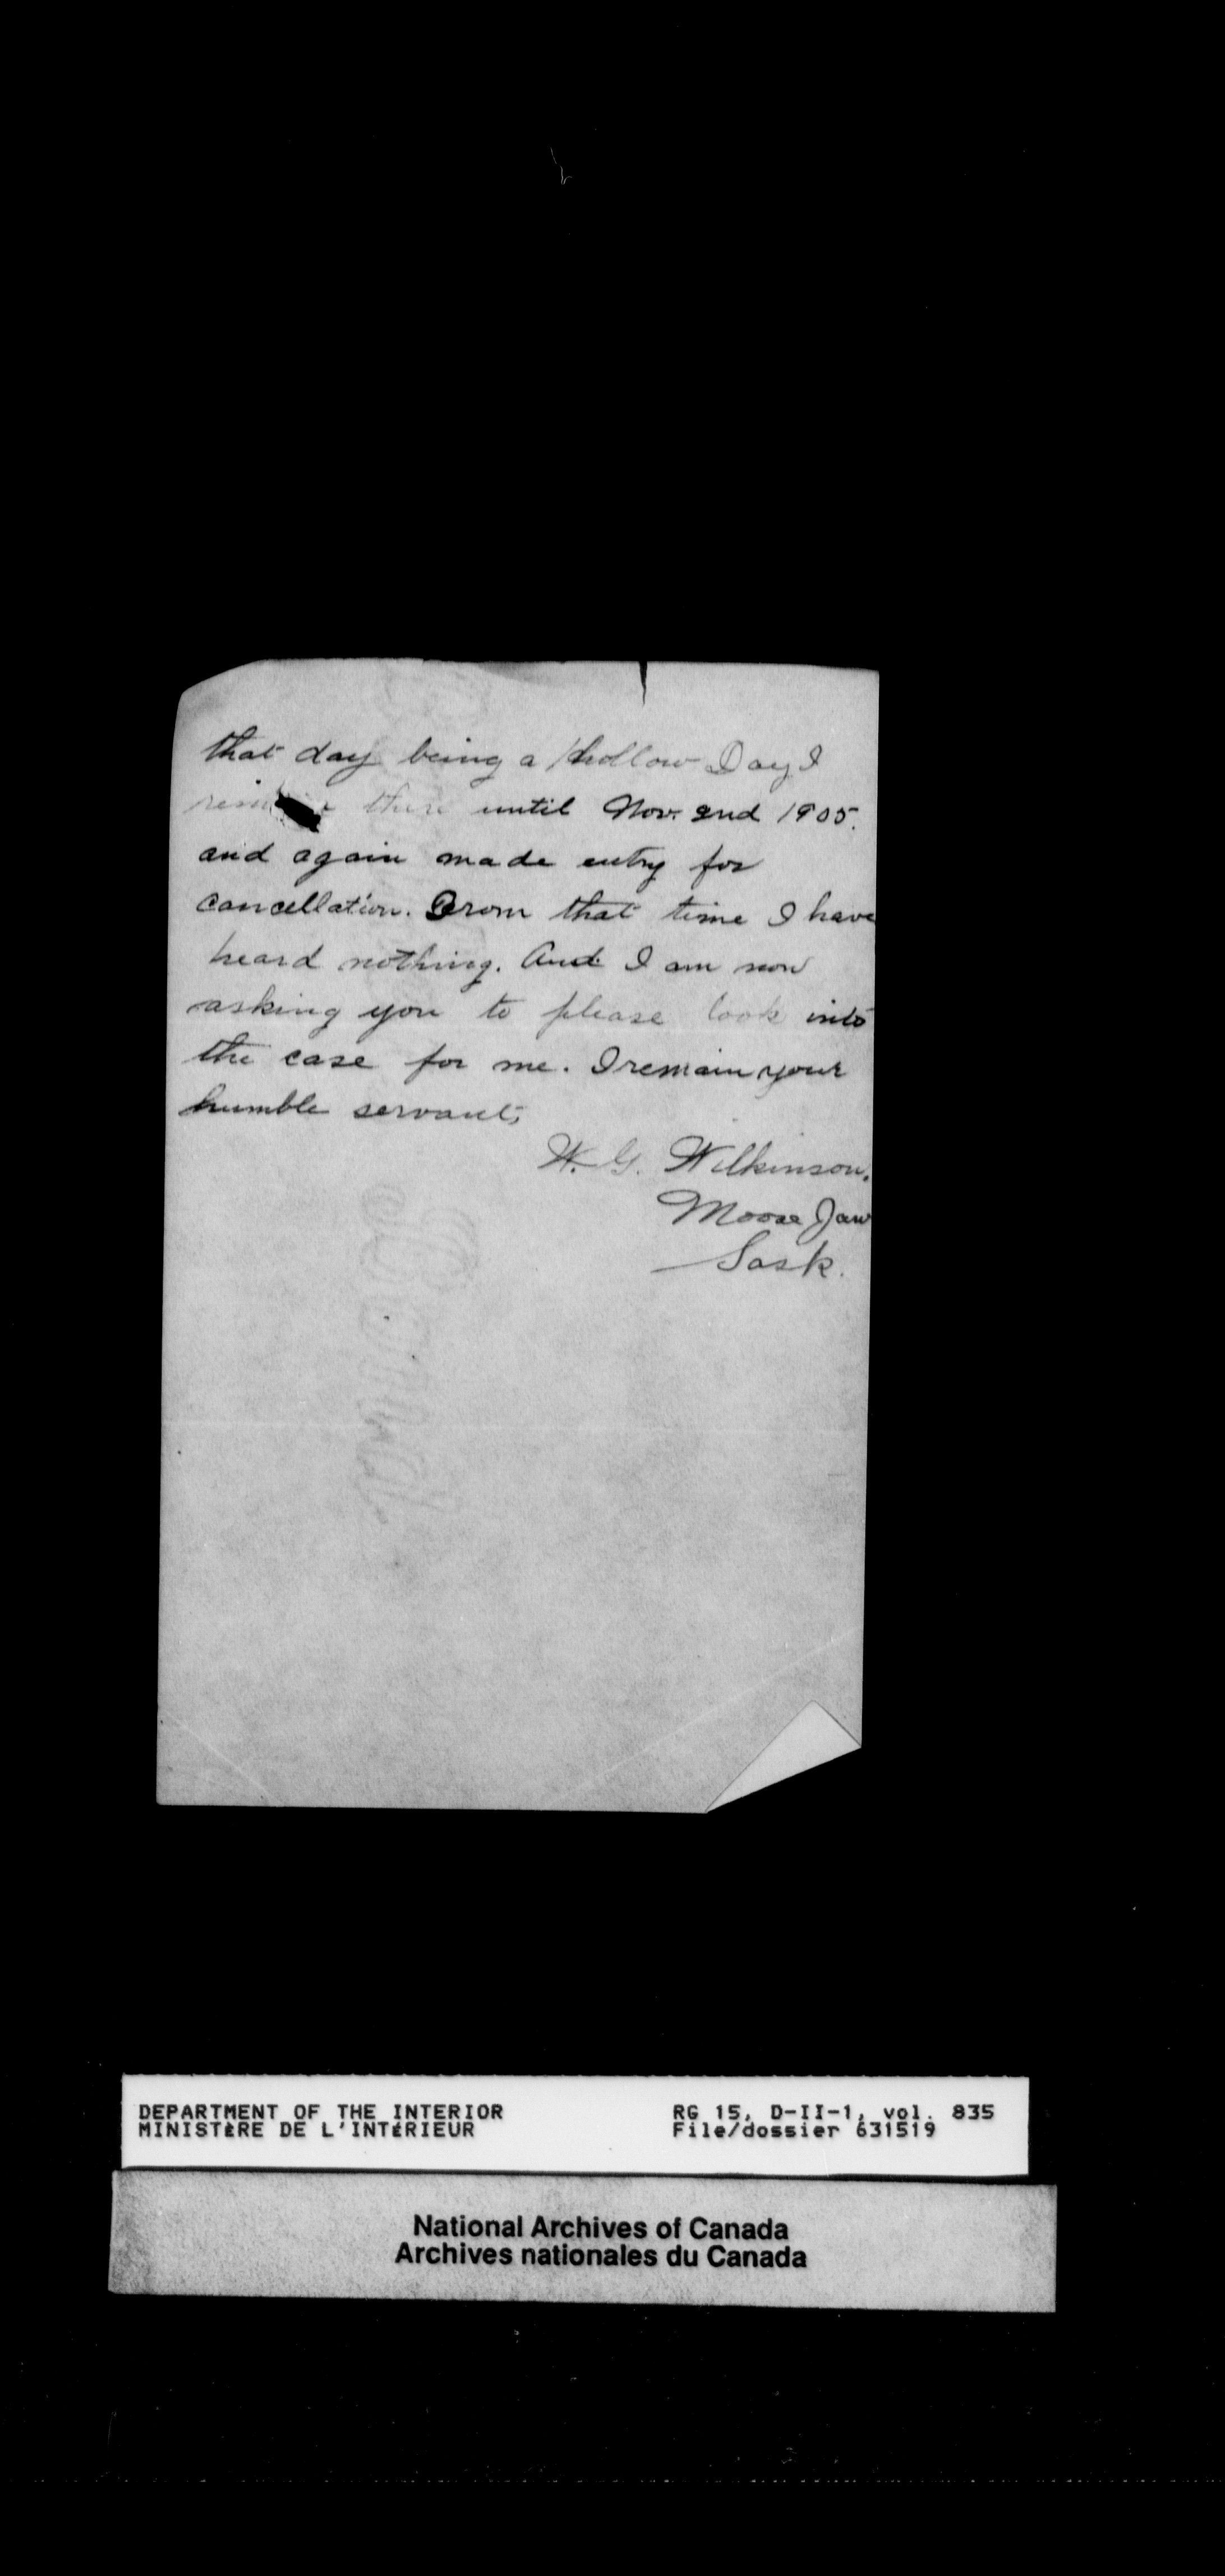 that day being a hollow Day I
there until Nov. 2nd 1905.
and again made entry for
cancellation. From that time I have
heard nothing. And I am now
asking you to please look into
the case for me. I remain your
humble servant,
W. G. Wilkinson.
Moose Jaw
Sask.
DEPARTMENT OF THE INTERIOR RG 15, D-II-1, vol. 835
MINISTÈRE DE L'INTÉRIEUR File/dossier 631519
National Archives of Canada
Archives nationales du Canada